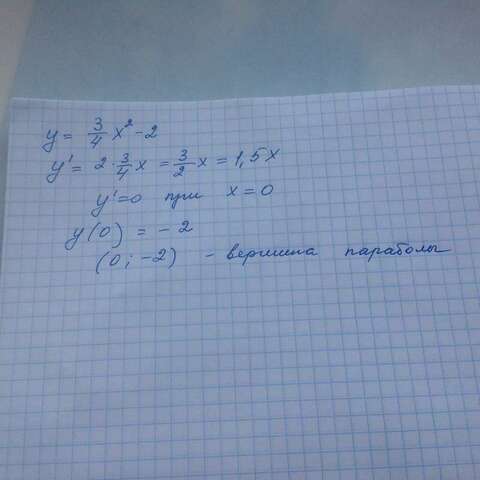 y = 3/4 x² - 2
y' = 2 · 3/4 x = 3/2 x = 1,5x
y'=0 при x = 0
y(0) = -2
(0; -2) - вершина параболы